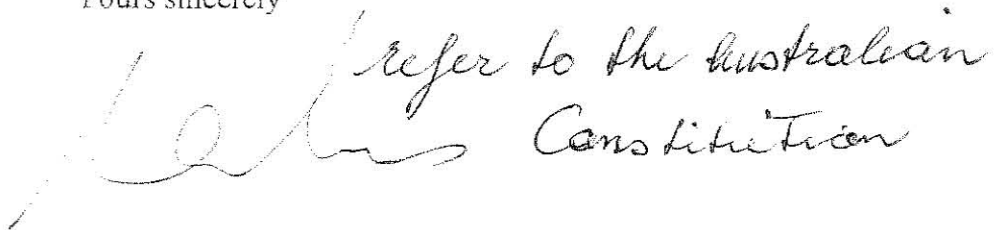 Yours sincerely
refer to the Australian
Constitution